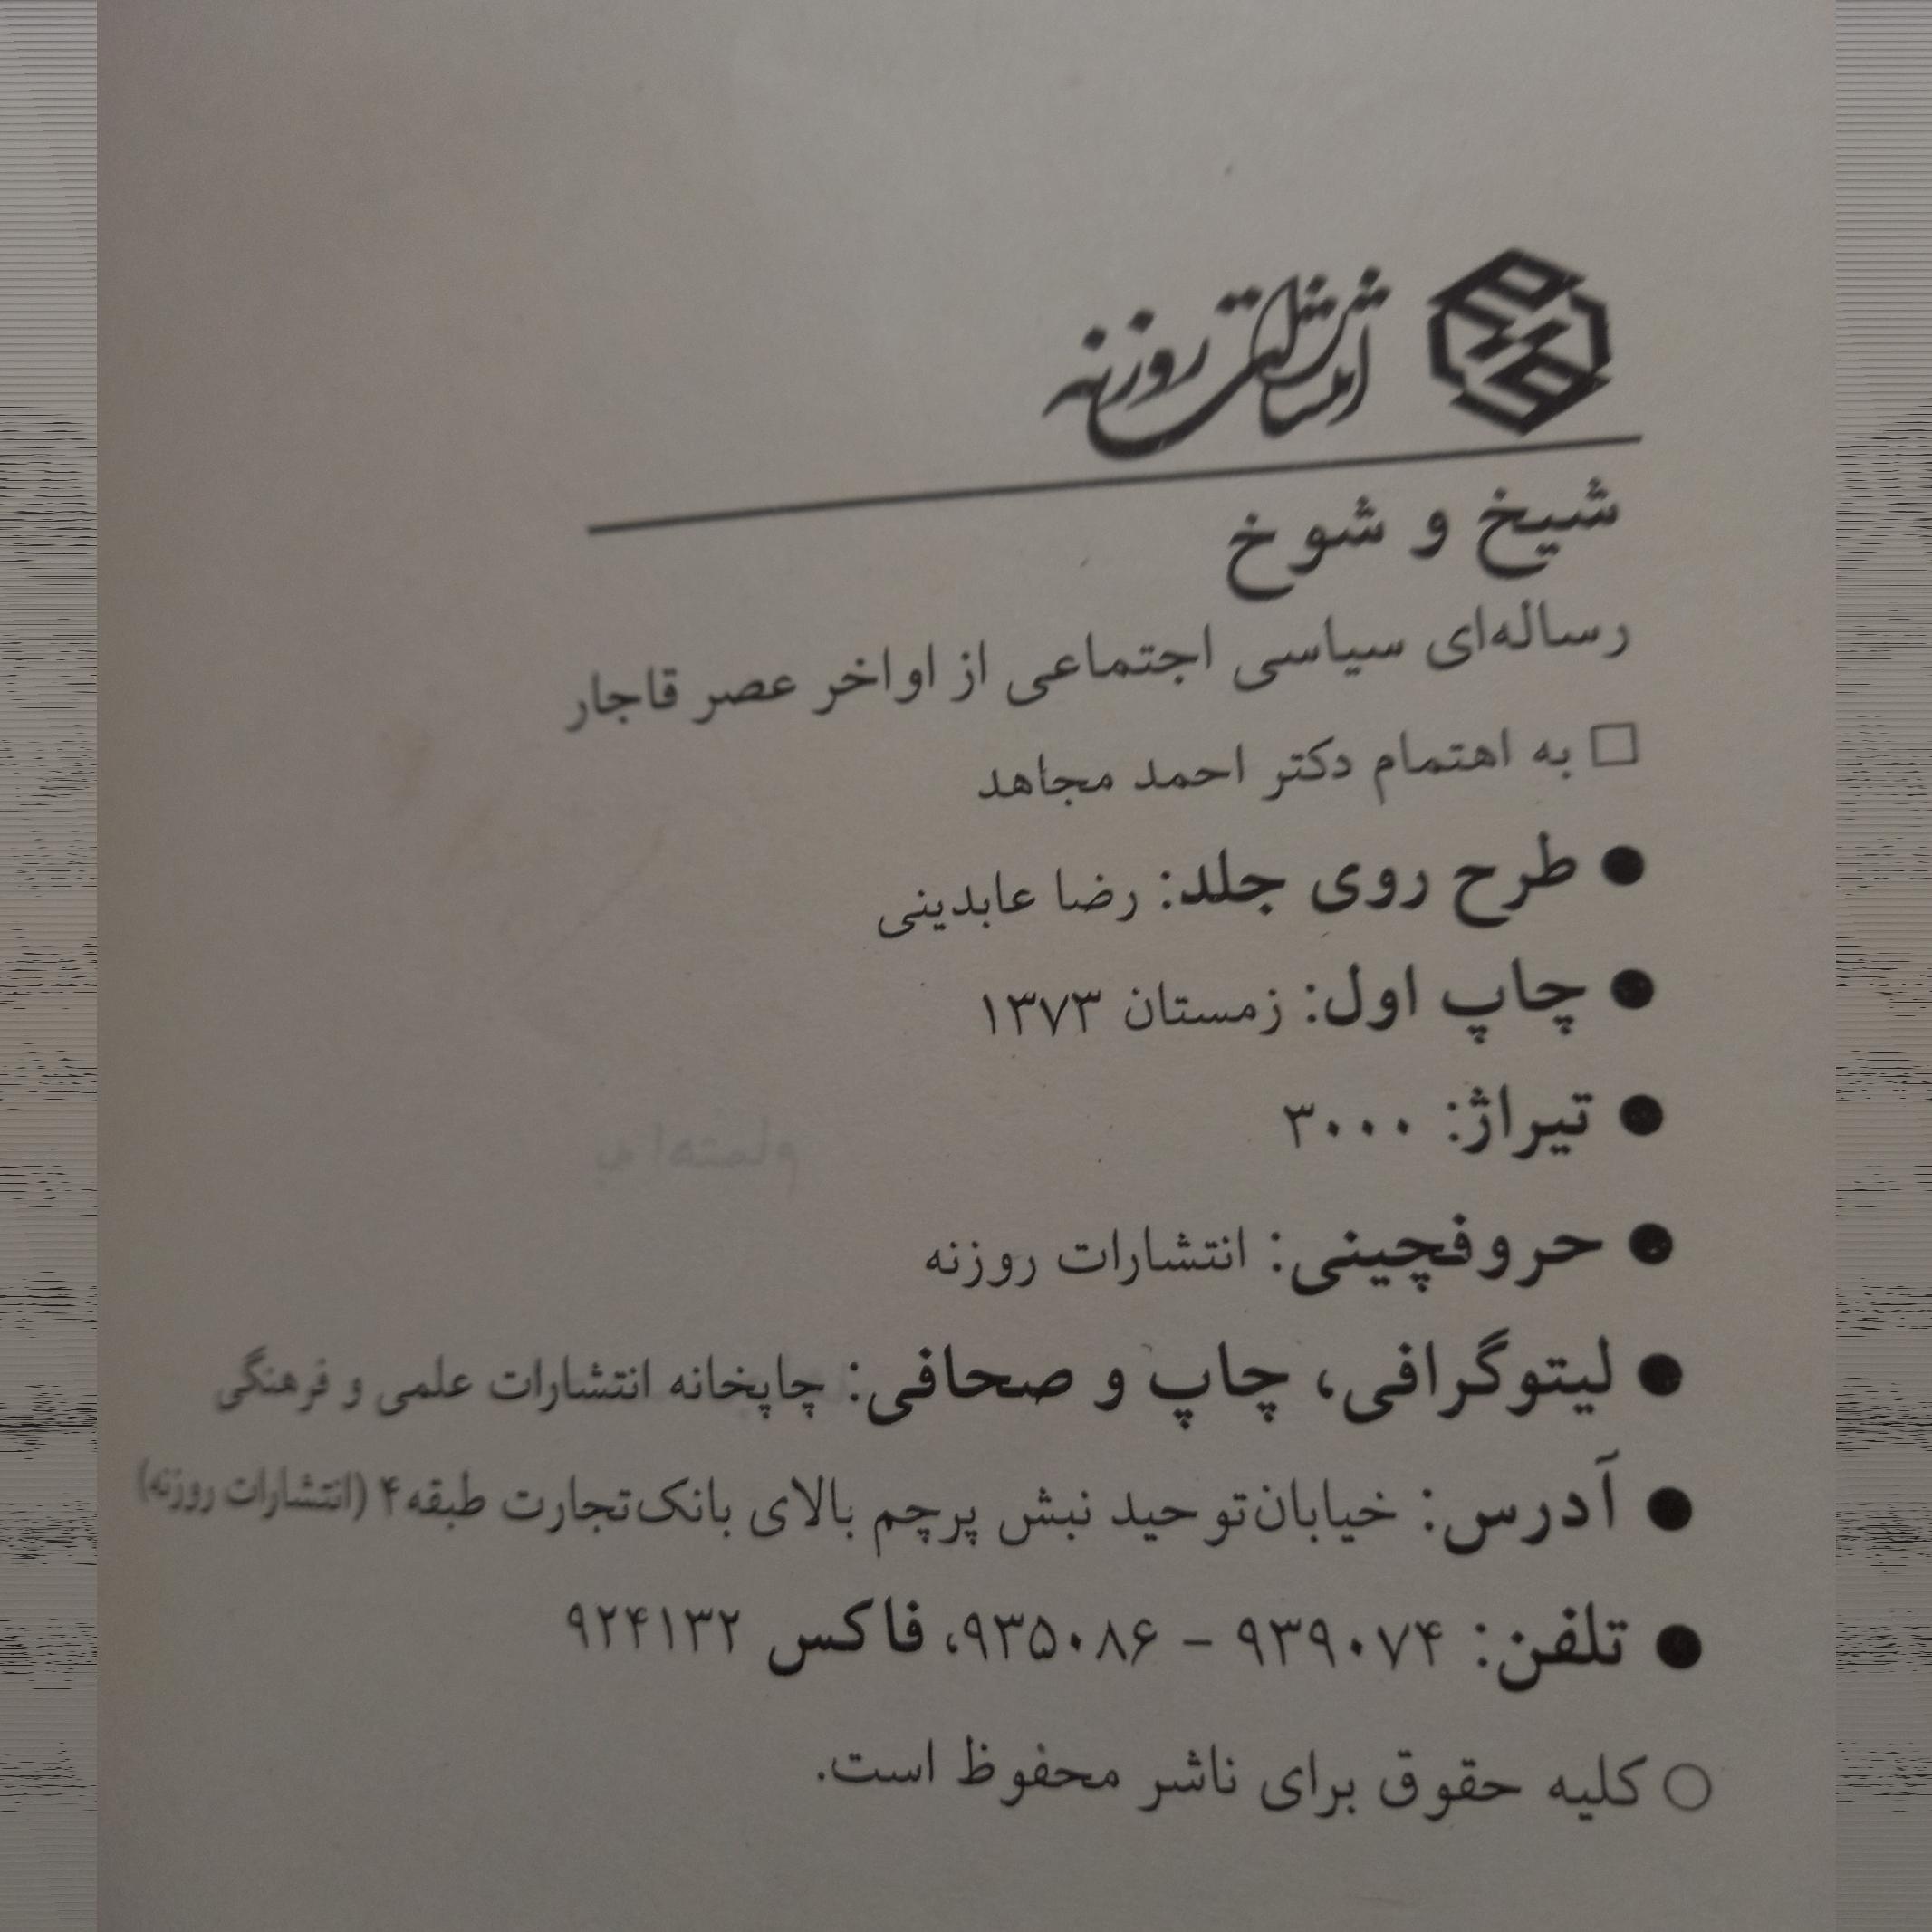 انتشارات روزنه
شیخ و شوخ
رساله‌ای سیاسی اجتماعی از اواخر عصر قاجار
□ به اهتمام دکتر احمد مجاهد
● طرح روی جلد: رضا عابدینی
● چاپ اول: زمستان ۱۳۷۳
● تیراژ: ۳۰۰۰
● حروفچینی: انتشارات روزنه
● لیتوگرافی، چاپ و صحافی: چاپخانه انتشارات علمی و فرهنگی
● آدرس: خیابان توحید نبش پرچم بالای بانک تجارت طبقه ۴ (انتشارات روزنه)
● تلفن: ۹۳۹۰۷۴ – ۹۳۵۰۸۶، فاکس ۹۲۴۱۳۲
○ کلیه حقوق برای ناشر محفوظ است.